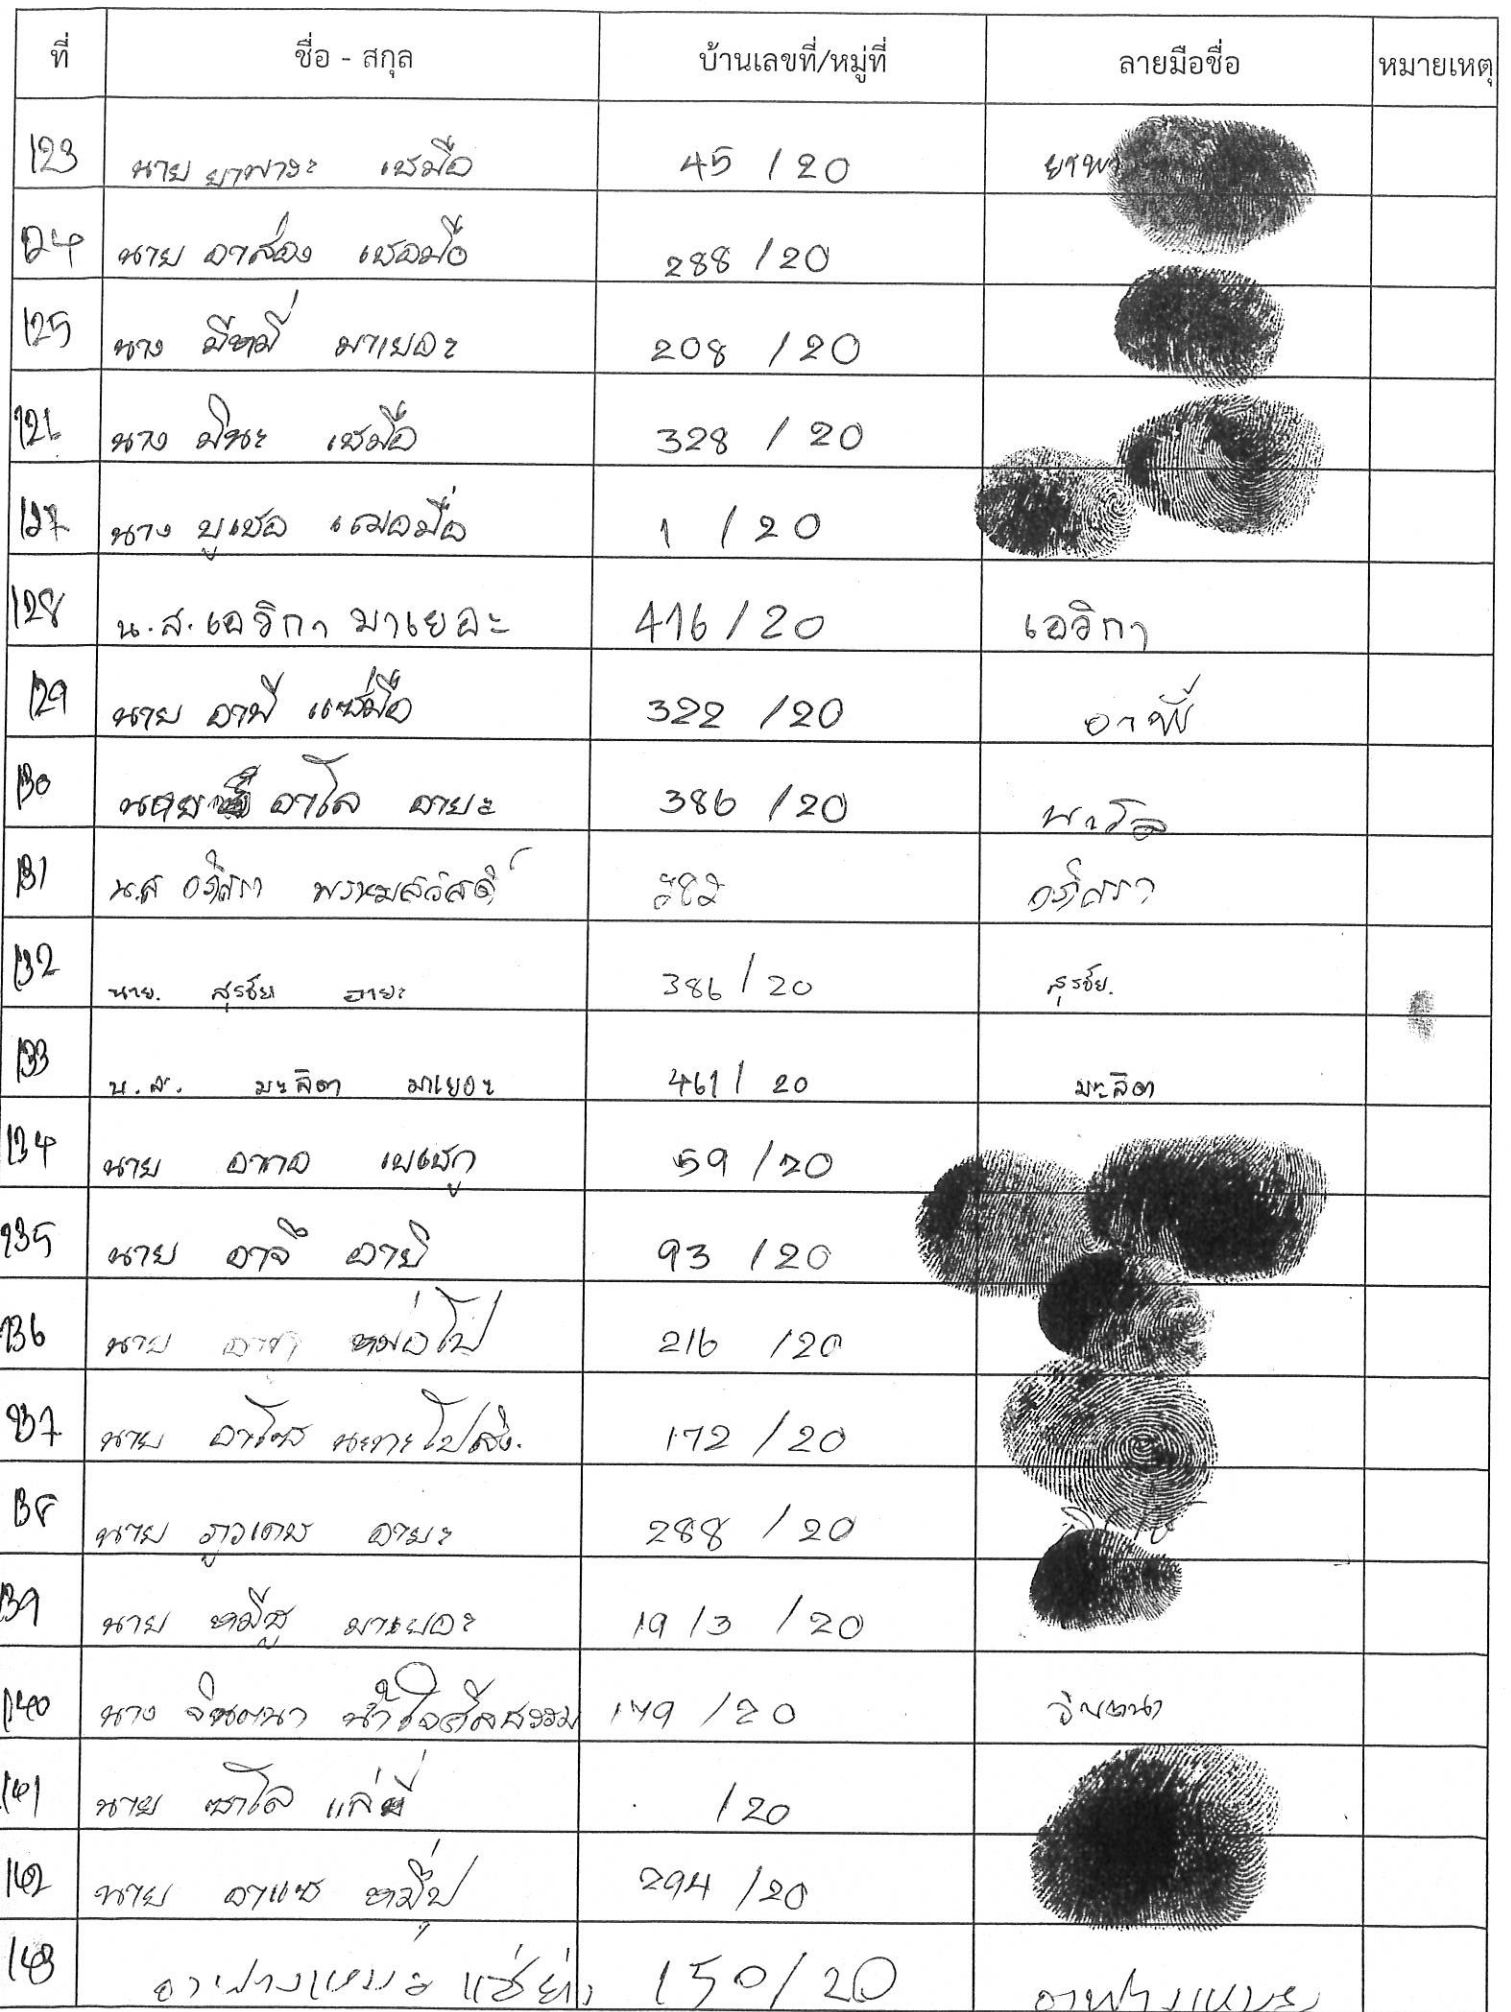 ที่ ชื่อ - สกุล บ้านเลขที่/หมู่ที่ ลายมือชื่อ หมายเหตุ
123 นาย ยาพางะ เชมือ 45 / 20
124 นาย อาส่อง เชอมือ 288 / 20
125 นาง มีหมี่ มาเยอะ 208 / 20
126 นาง มินะ เชมือ 328 / 20
127 นาง บูเชอ เฌอมือ 1 / 20
128 น.ส. เอวิกา มาเยอะ 416 / 20 เอวิกา
129 นาย อาพี แซ่มือ 322 / 20
130 นาย อาโล อายะ 386 / 20
131 น.ส อภิสรา พรหมสวัสดิ์ อภิสรา
132 นาย. สุรชัย อายะ 386 / 20 สุรชัย.
133 น.ส. มะลิตา มาเยอะ 461 / 20 มะลิตา
134 นาย 59 / 20
135 นาย อาจี อายี 93 / 20
136 นาย หม่อโป 216 / 20
137 นาย 172 / 20
138 นาย ภูวเดช อายะ 288 / 20
139 นาย หมีซู มาเยอะ 19 / 3 / 20
140 นาง จินตนา น้ำใจศีลธรรม 179 / 20 จินตนา
141 นาย / 20
142 นาย อาแซ 294 / 20
143 แซ่ย่าง 150 / 20